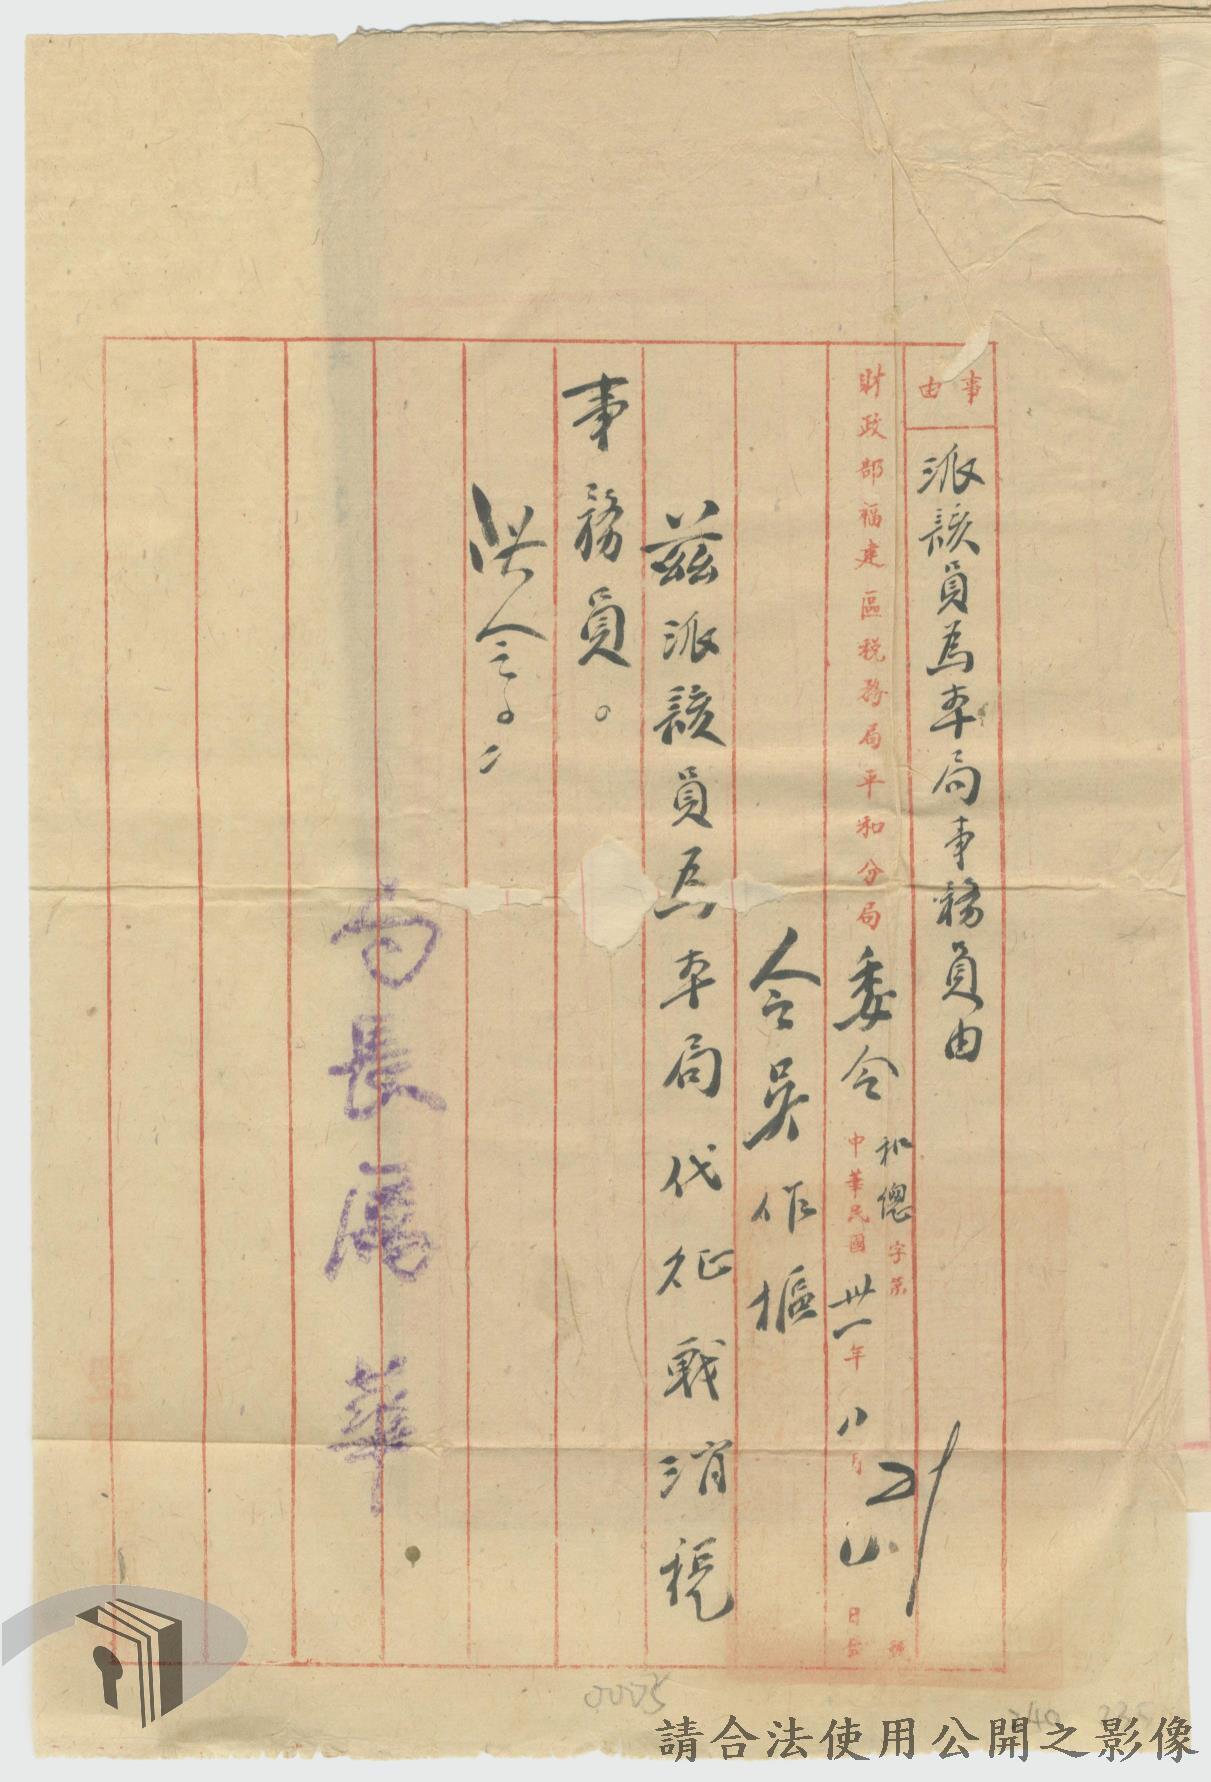 事由
派該員為本局事務員由
財政部福建區稅務局平和分局委令
和總字第
號
中華民國卅一年八月
日
令吳作樞
茲派該員為本局代征戰消稅
事務員。
此令
局長
華
0005
請合法使用公開之影像